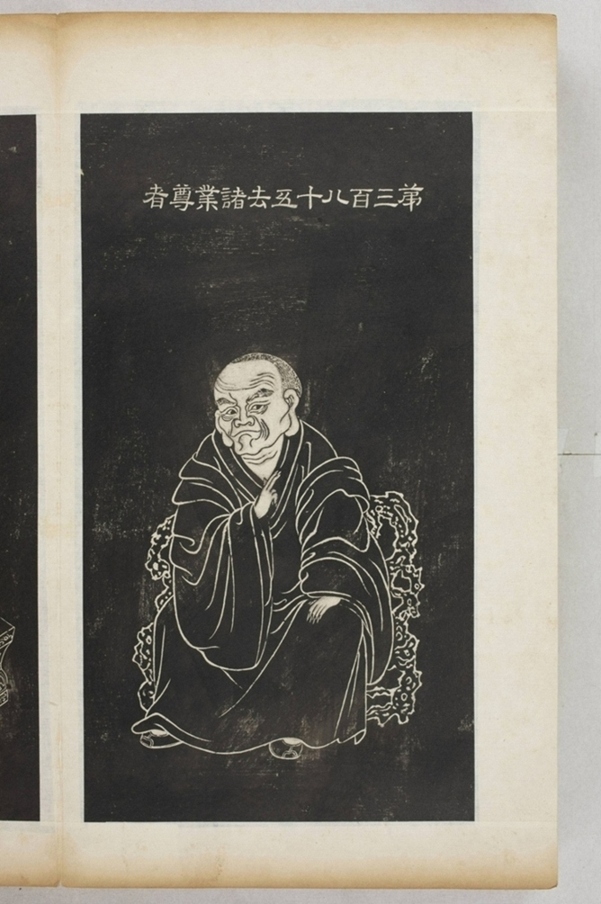 苐三百八十五去諸業尊者